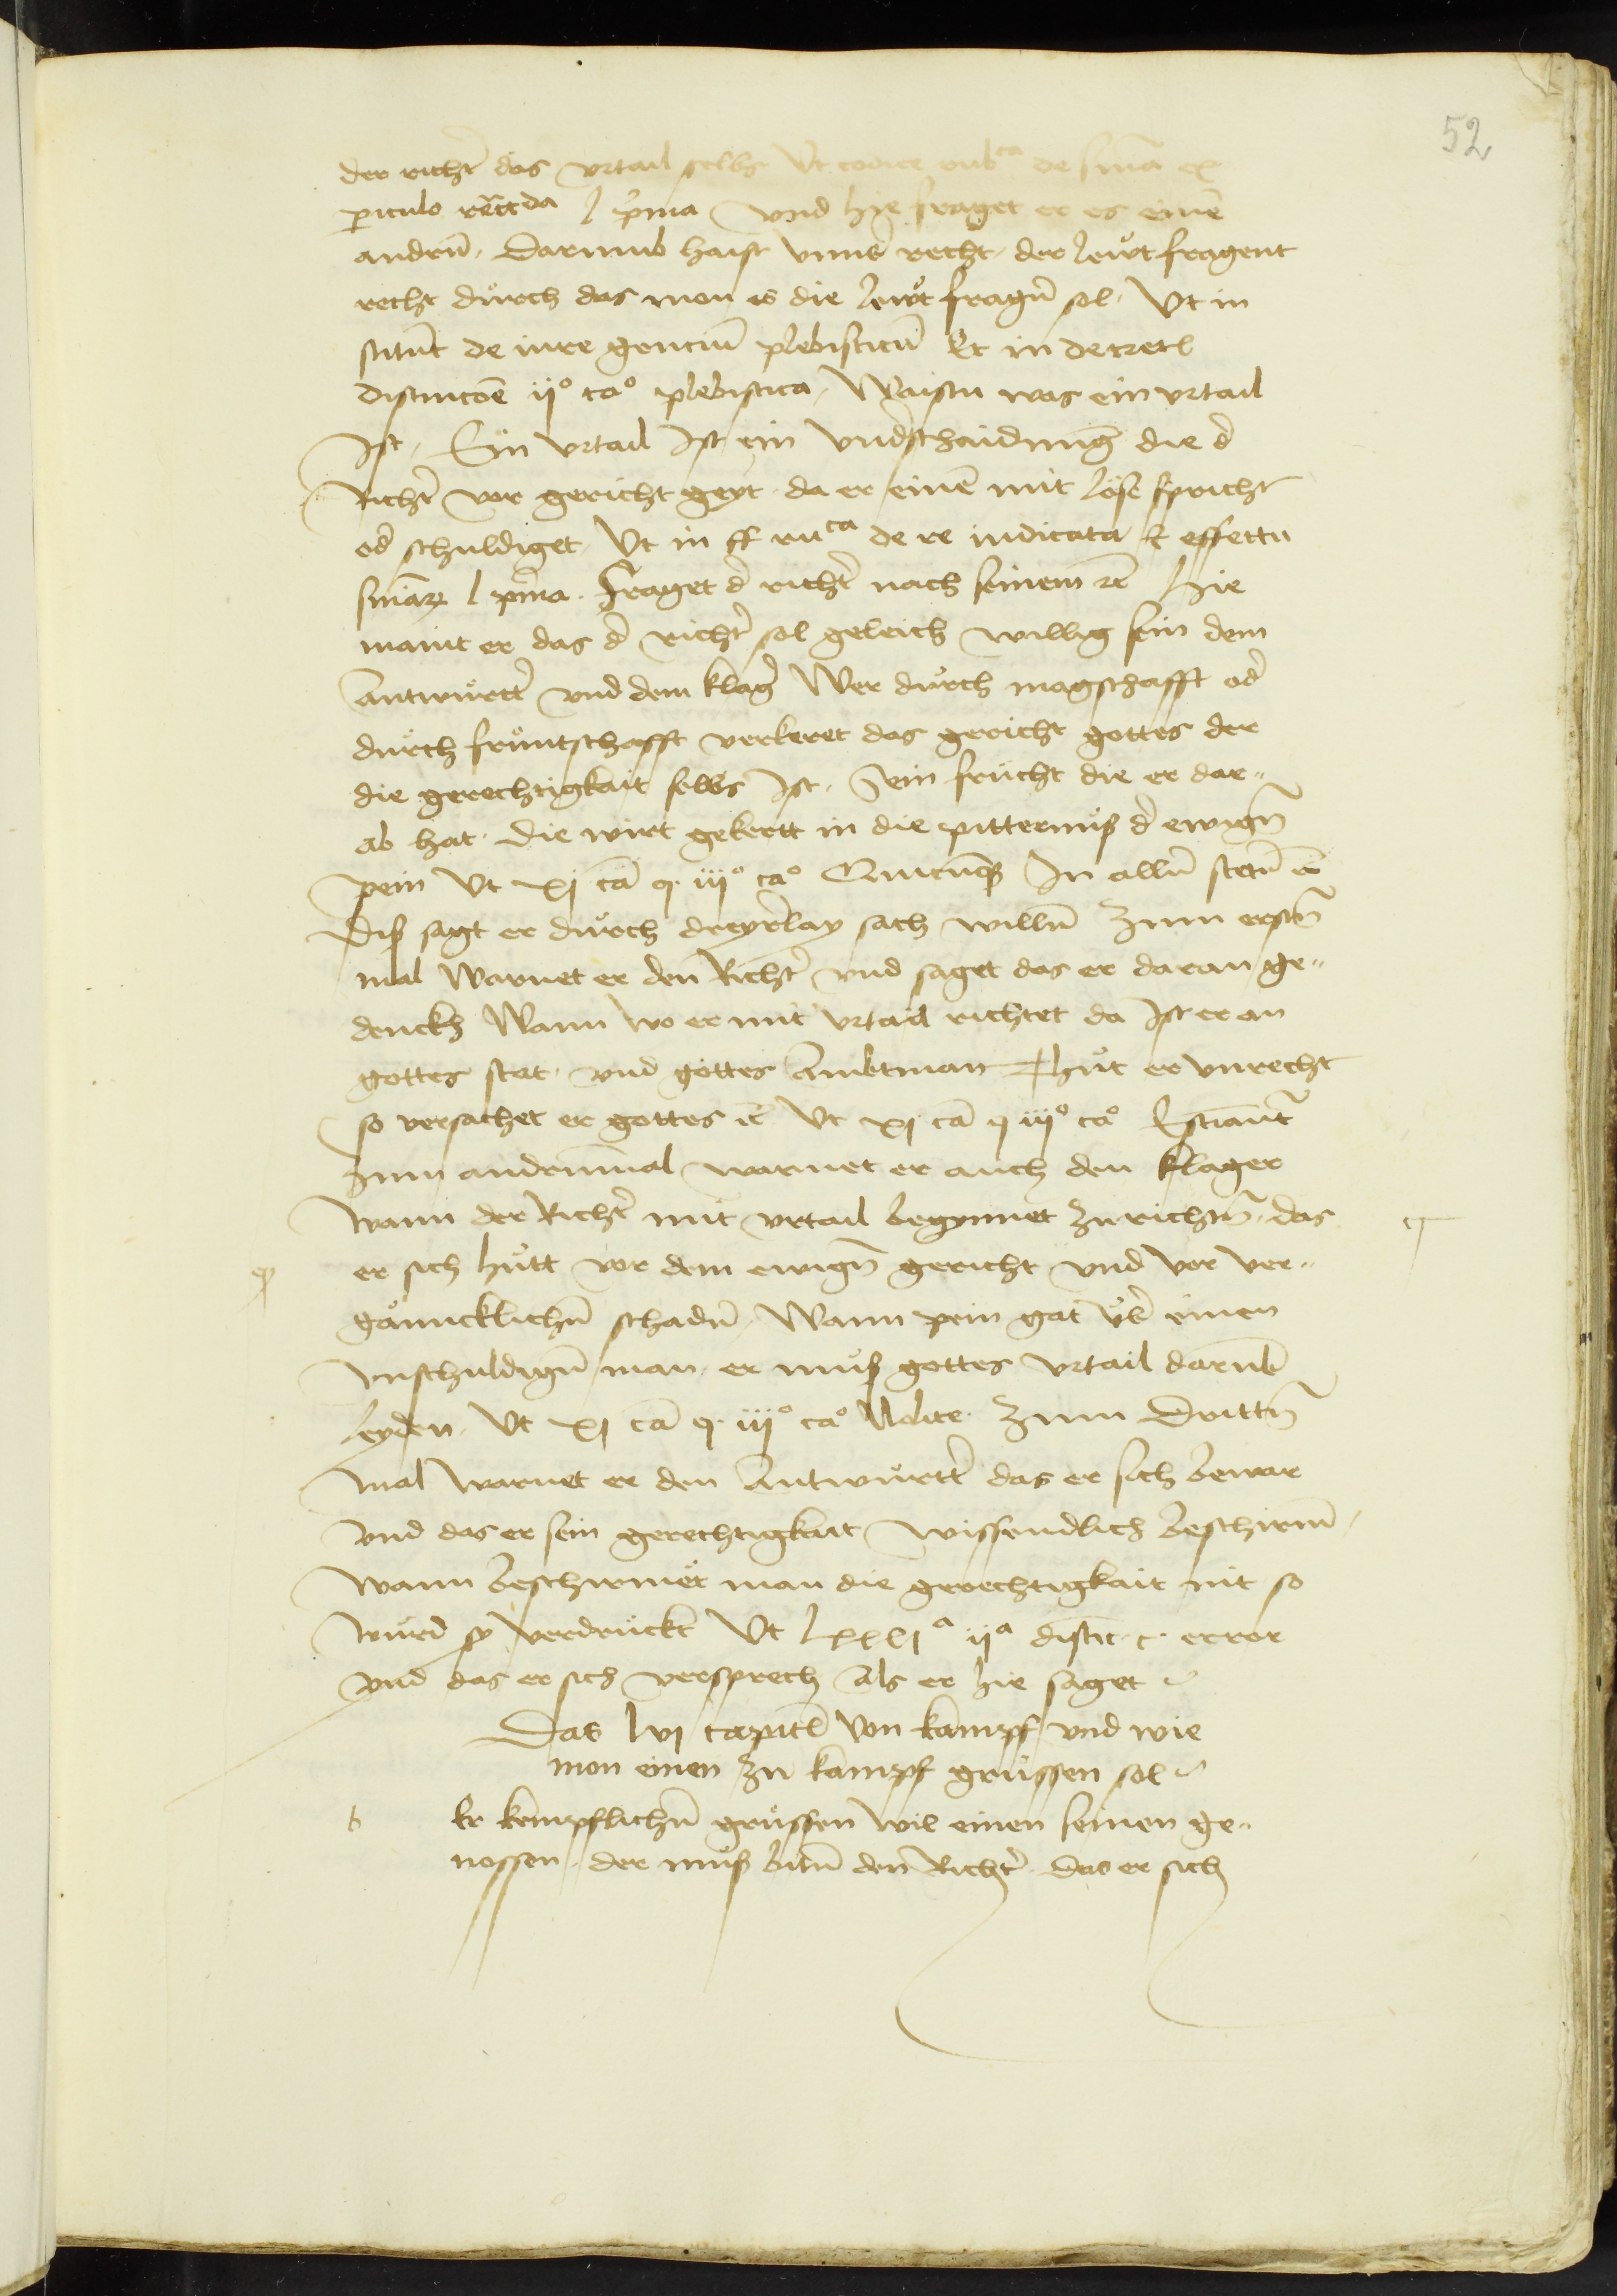 52
der richt̉ das vrtail selbs Vt codice rub^ca de sm̄a ex
piculo rec̄tda l p̉ma vnd hie fraget er es einē
andrn̄ . Darumb haist vnns recht . der lewt fragent
recht durch das mon es die lewt fragn̄ sol . Vt in
stitut̄ de iure genciu̅ plebiscitu̅ Et in decretl
distincōe ij° ca° plebiscita . Waistu was ein vrtail
Jst . Ein vrtail Jst ein vnd̉schaidung die d̉
Richt̉ vor gericht geyt . da er einē mit löse spricht
od̉ schuldiget . Vt in ff ru^ca de re iudicata & effectu
sm̄ar l p̉ma . Fraget d̉ richt̉ nach seinem rc̄ Hie
maint er das d̉ richt̉ sol geleich willig sein dem
Antwurtt̉ vnd dem klag̉ Wer durch magschafft od̉
durch fruntschafft verkeret das gericht gottes der
die gerechtigkait selbs Jst . Sein frucht die er dar¬
ab hat . die wirt gekertt in die pitternuß d̉ ewign̄
pein Vt xj cā q. iij° ca° Quicūqꝫ Jn alln̄ stetn̄ rc̄
Diß sagt er durch dreyrlay sach willn̄ Zum erstn̄
mal Warnet er den Richt̉ vnd saget das er daran ge¬
denckh Wann wo er mit vrtail richtet da Jst er an
gottes stat . vnd gottes Ambtman Thut er vnrecht
so versachet er gottes rc̄ Vt xj cā q iij° ca° Estimant̄
Zum andrnmal warnet er auch den klager
Wann der Richt̉ mit vrtail begynnet zu richtn̄ . das
er sich hutt vor dem ewign̄ gericht vnd vor ver¬
gäncklichn̄ schadn̄ . Wann pein gat vb̉ einen
vnschuldign̄ man . er muß gottes vrtail darub̄
leyden . Vt xj cā q. iij° ca° Nolite . Zum Drittn̄
mal warnet er den Antwurtt̉ das er sich bewar
vnd das er sein gerechtigkait wissendlich beschirm̄ .
Wann beschirmet man die gerechtigkait nit so
wurd sy verdruckt Vt lxxxj^a ij^a distic̄. c. error
vnd das er sich versprech Als er hie saget
Das lvj capitl Von kampf vnd wie
mon einen zu kampf grussen sol
Er kempflichn̄ grussen wil einen seinen ge¬
nossen . der muß bitn̄ den Richt̉ . das er sich